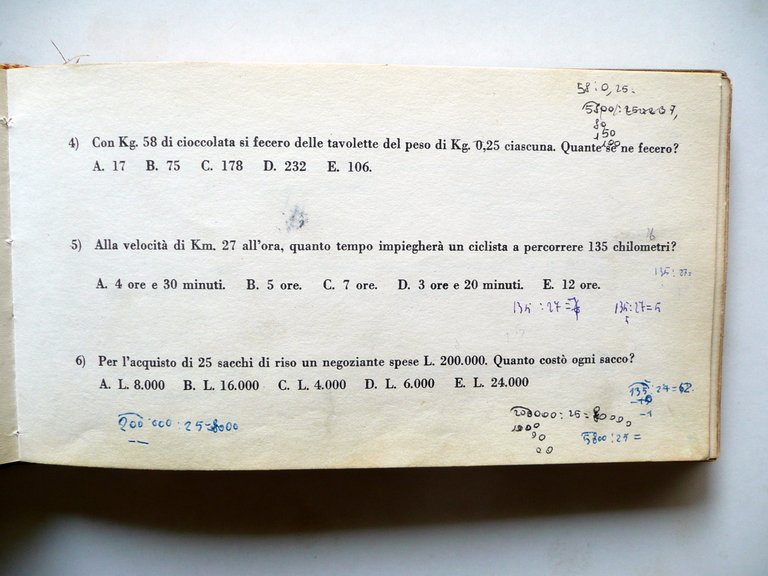 58:0,25=
80
150
100
4) Con Kg. 58 di cioccolata si fecero delle tavolette del peso di Kg. 0,25 ciascuna. Quante se ne fecero?
A. 17 B. 75 C. 178 D. 232 E. 106.
5) Alla velocità di Km. 27 all'ora, quanto tempo impiegherà un ciclista a percorrere 135 chilometri?
135:27=
A. 4 ore e 30 minuti. B. 5 ore. C. 7 ore. D. 3 ore e 20 minuti. E. 12 ore.
135:27= 135:27=5
5
6) Per l'acquisto di 25 sacchi di riso un negoziante spese L. 200.000. Quanto costò ogni sacco?
A. L. 8.000 B. L. 16.000 C. L. 4.000 D. L. 6.000 E. L. 24.000
200.000:25=8000 200000:25=8000
5800:25=